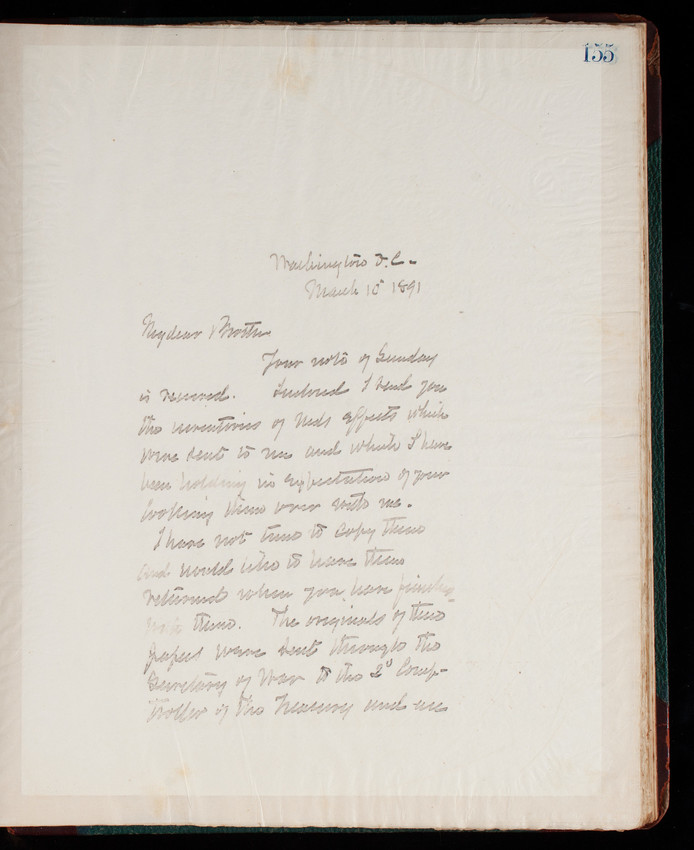 155
Washington D.C.
March 10 1891
My dear Brother
Your note of Sunday
is received. Inclosed I send you
the inventories of Neds effects which
were sent to me and which I have
been holding in expectation of your
looking them over with me.
I have not time to copy them
and would like to have them
returned when you have finished
with them. The originals of these
papers were sent through the
Secretary of War to the 2d Comp-
troller of the Treasury and are